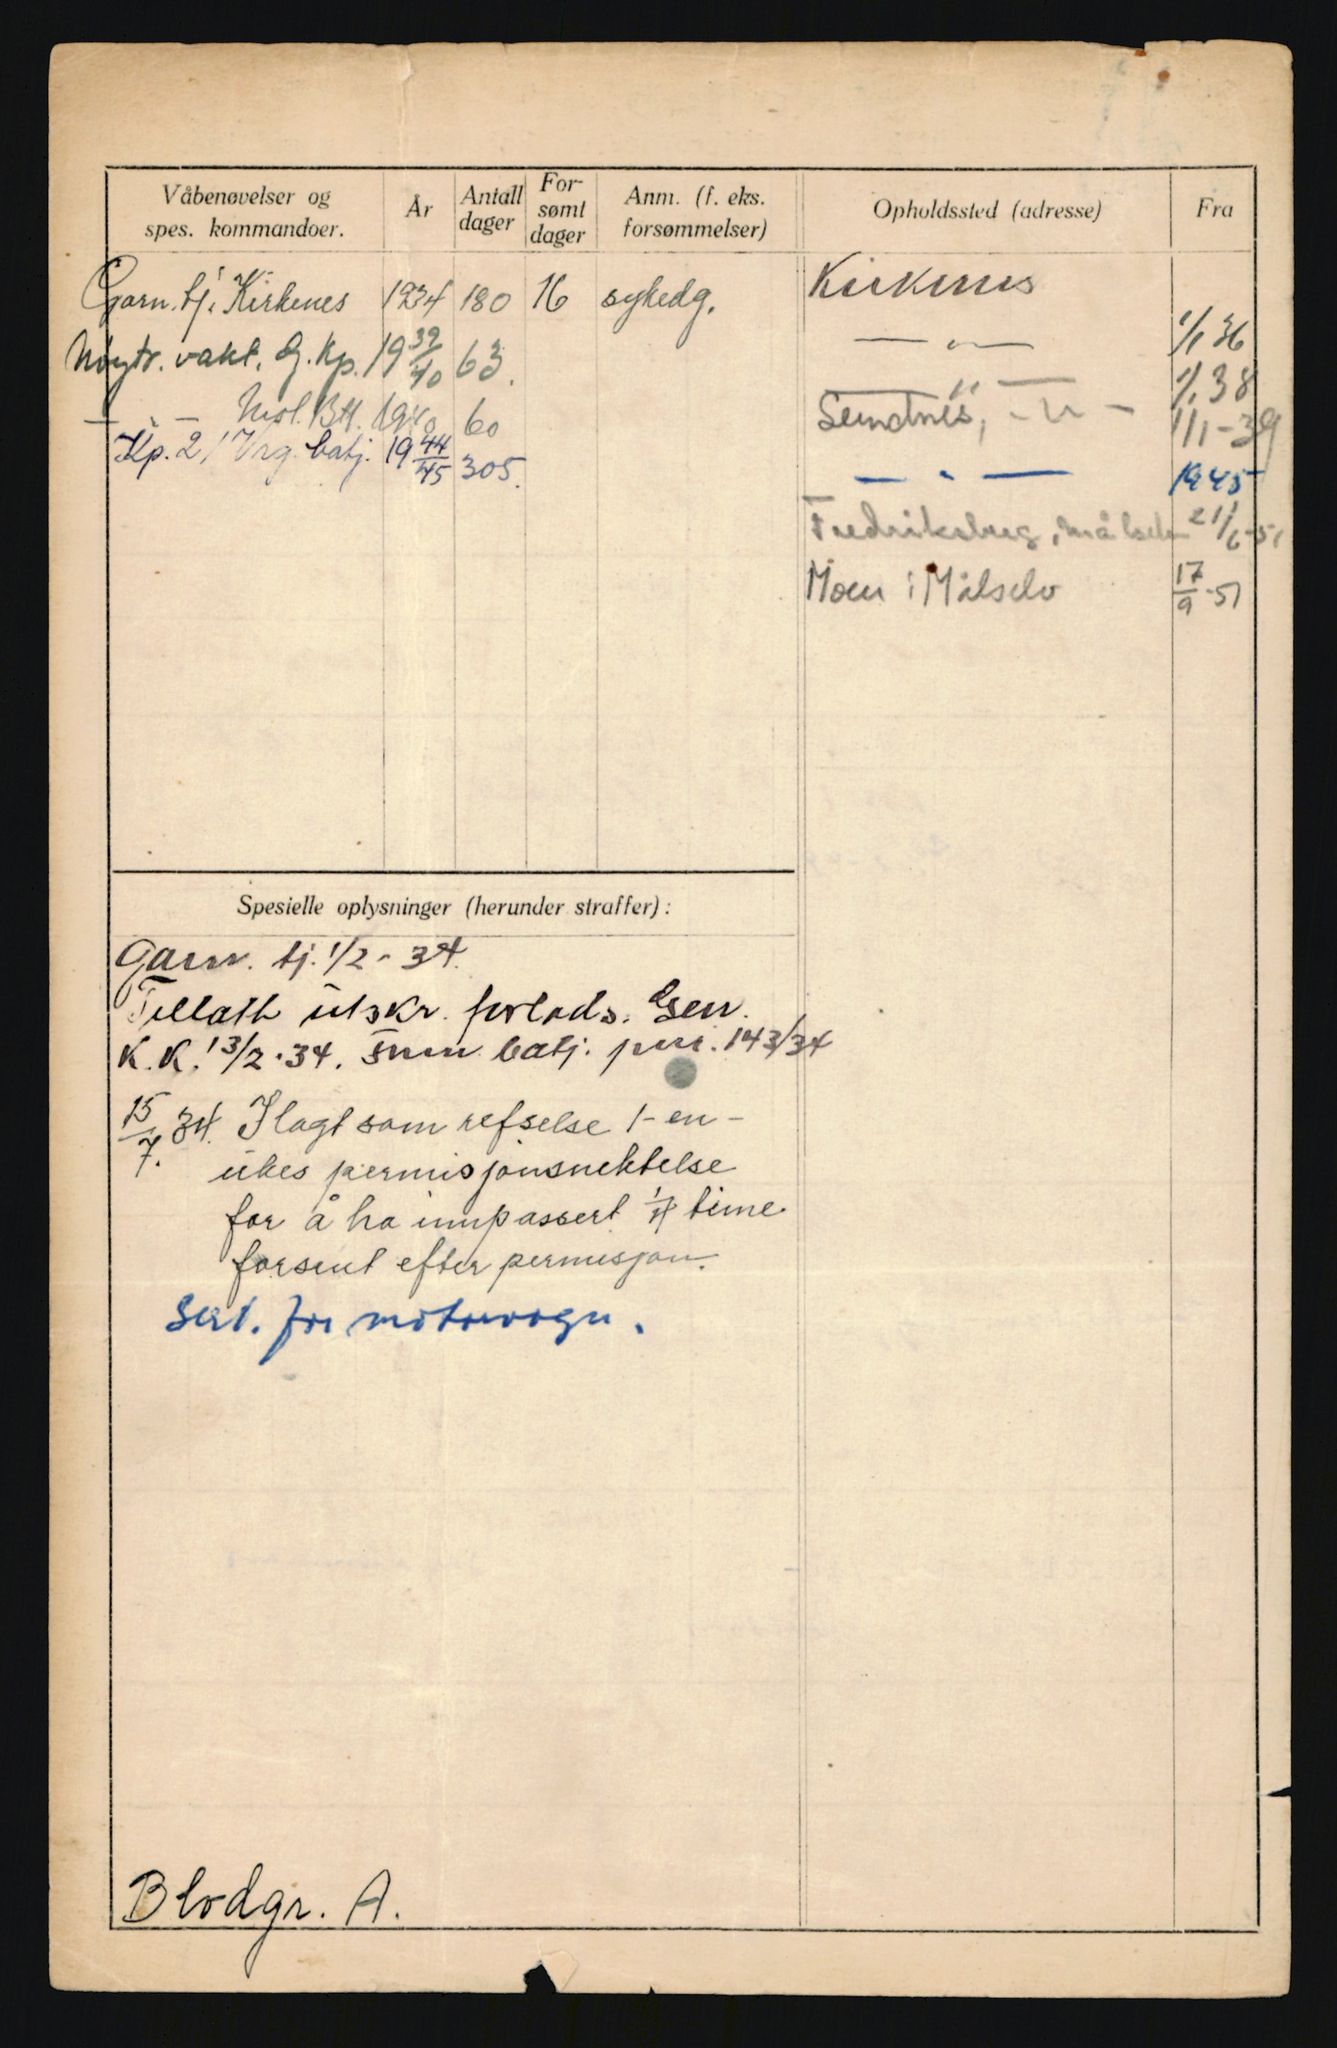 Våbenøvelser og
spes. kommandoer.
År
Antall
dager
For-
sømt
dager
Anm. (f. eks.
forsømmelser)
Opholdssted (adresse)
Fra
Garn. tj. Kirkenes 1934 180 16 sykedg.
Nøytr. vakt. G. Kp. 19 39/40 63.
— " — 1940 60
Kp. 2/Varg. batj. 19 44/45 305.
Kirkenes
— " — 1/1 36
— " — 1/1 38
Sandnes, - " - 1/1-39
— " — 1945
Fredriksberg, Målselv 21/6-51
Moen i Målselv 17/9-51
Spesielle oplysninger (herunder straffer):
Garn. tj. 1/2-34.
Tillatt utskr. forlods. Gen.
K. K. 13/2-34. batj. 143/34
15/7. 34. Ilagt som refselse 1-en-
ukes permisjonsnektelse
for å ha innpassert 1/4 time
forsent efter permisjon.
Sert. for motorvogn.
Blodgr. A.